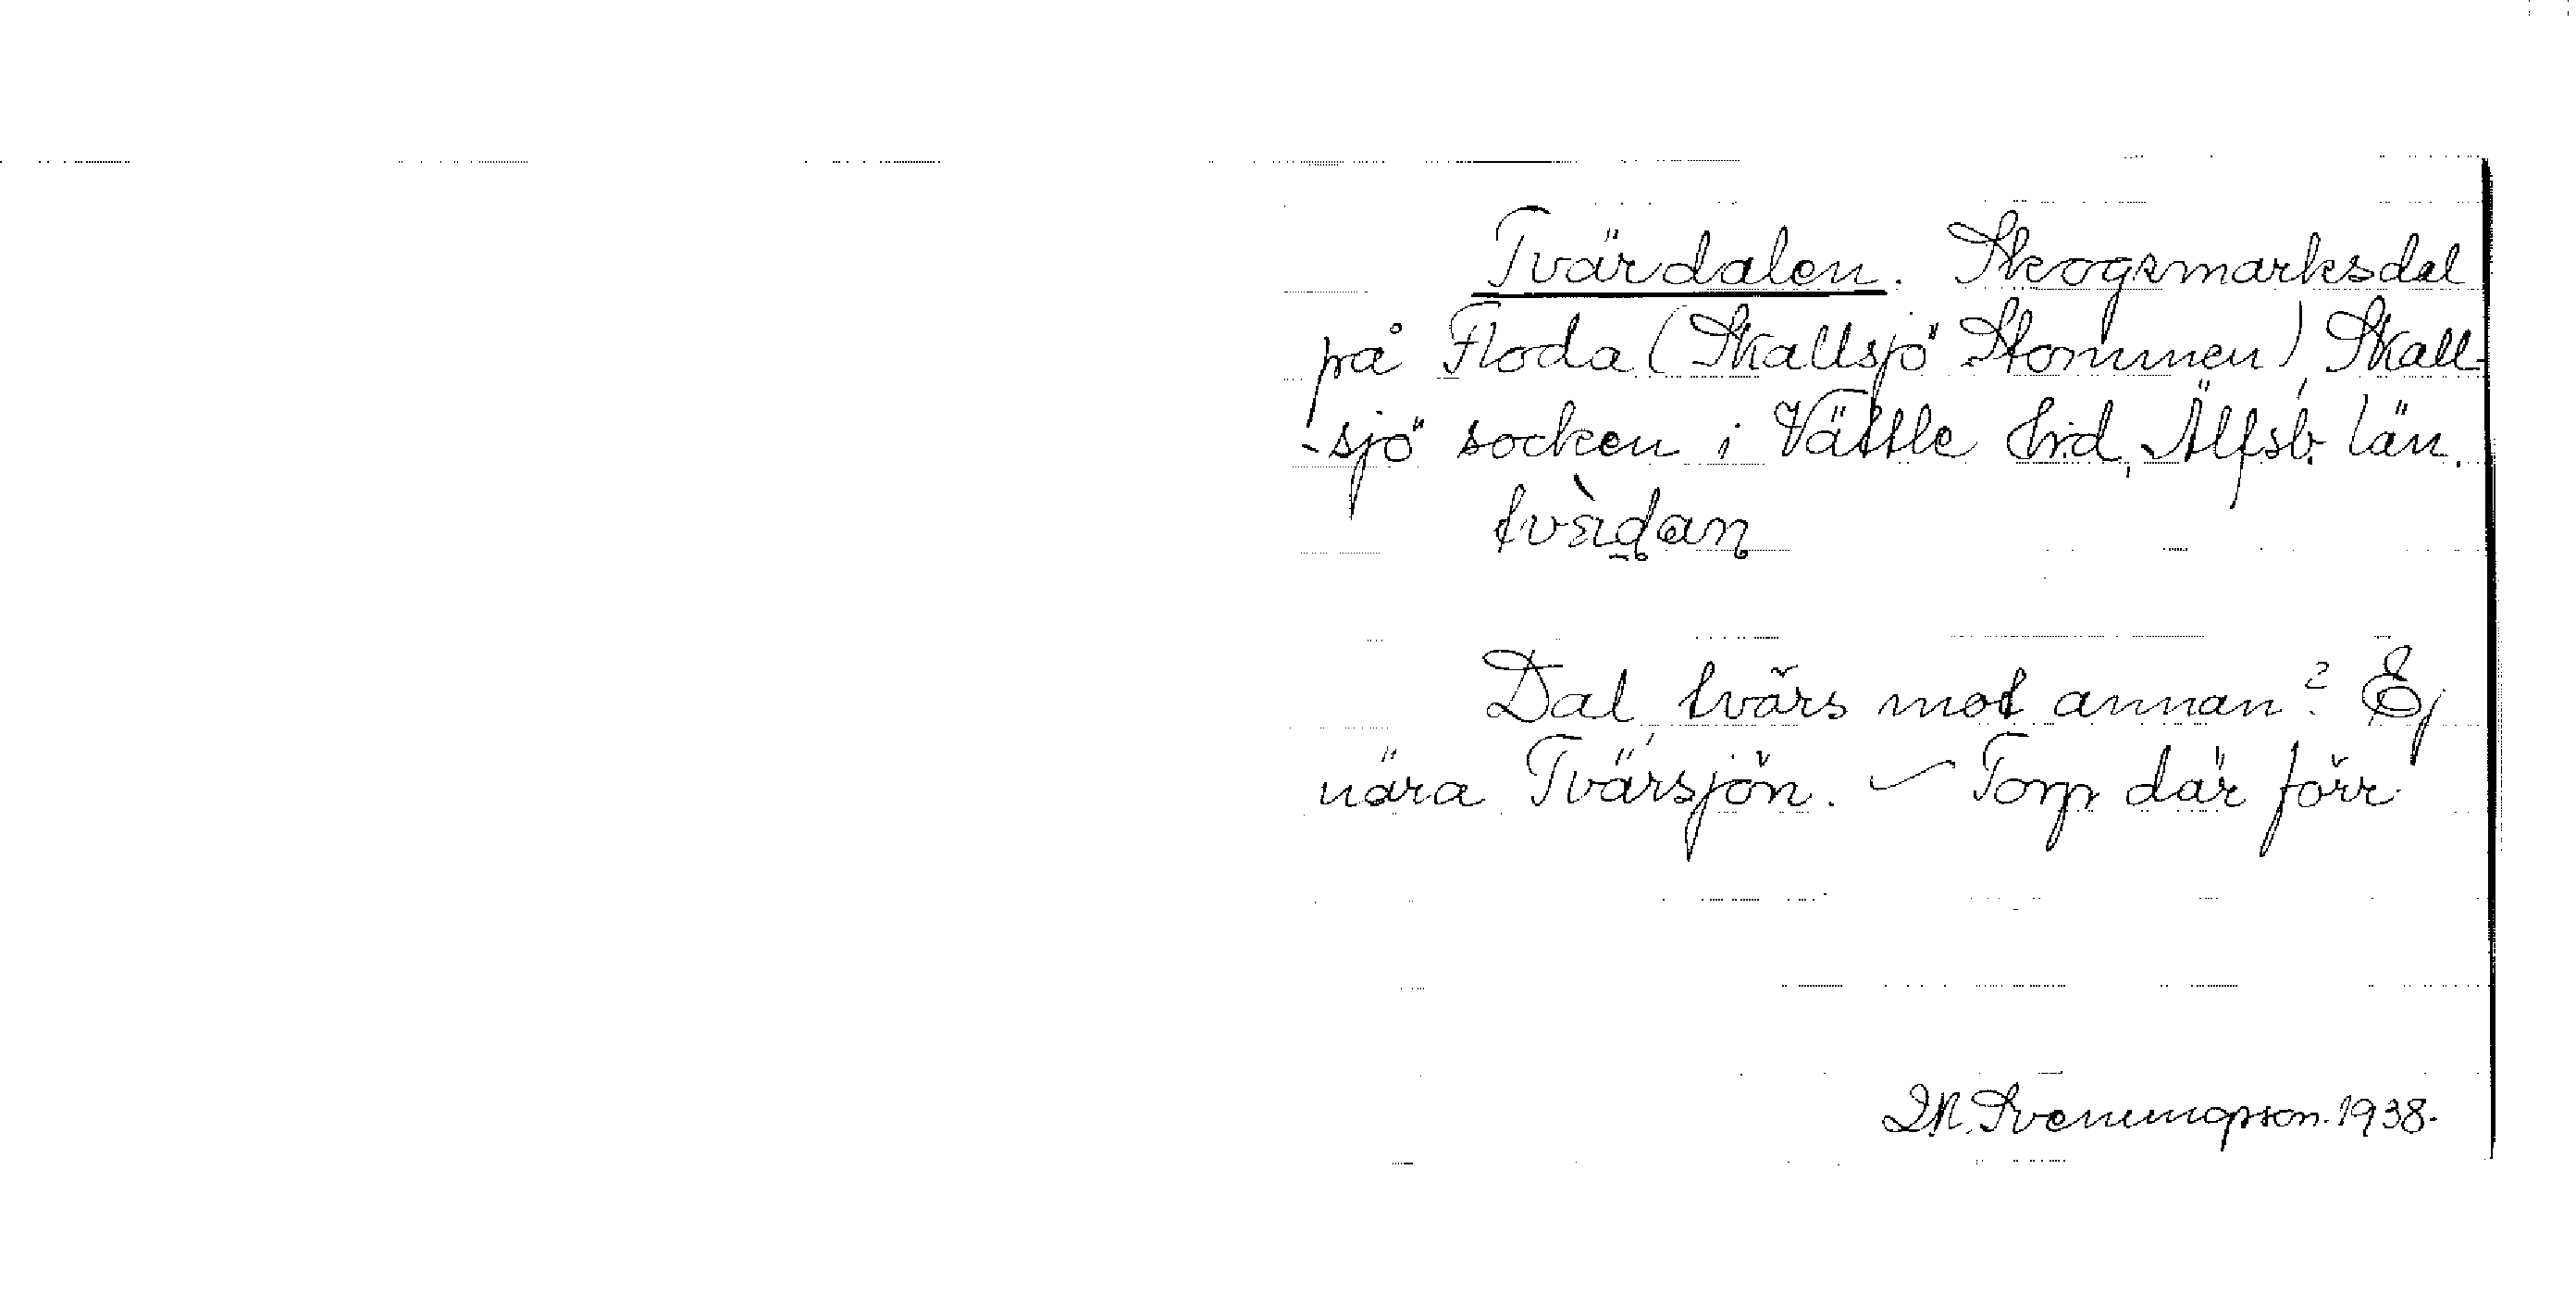 Tvärdalen. Skogsmarksdal
på Floda (Skallsjö Stommen), Skall-
-sjö socken i Vättle hrd, Älfsb. län.
Dal, tvärs mot annan? Ej
nära Tvärsjön. – Torp där förr
Svenungsson. 1938.